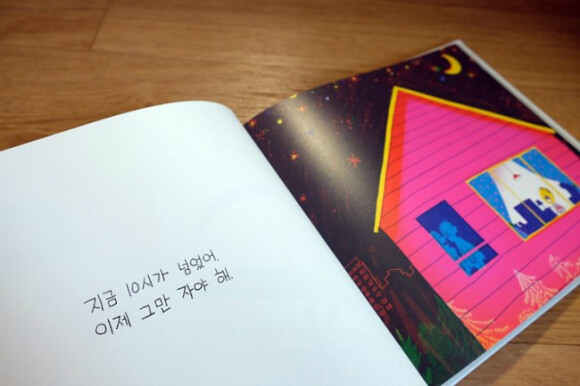 지금 10시가 넘었어.
이제 그만 자야 해.